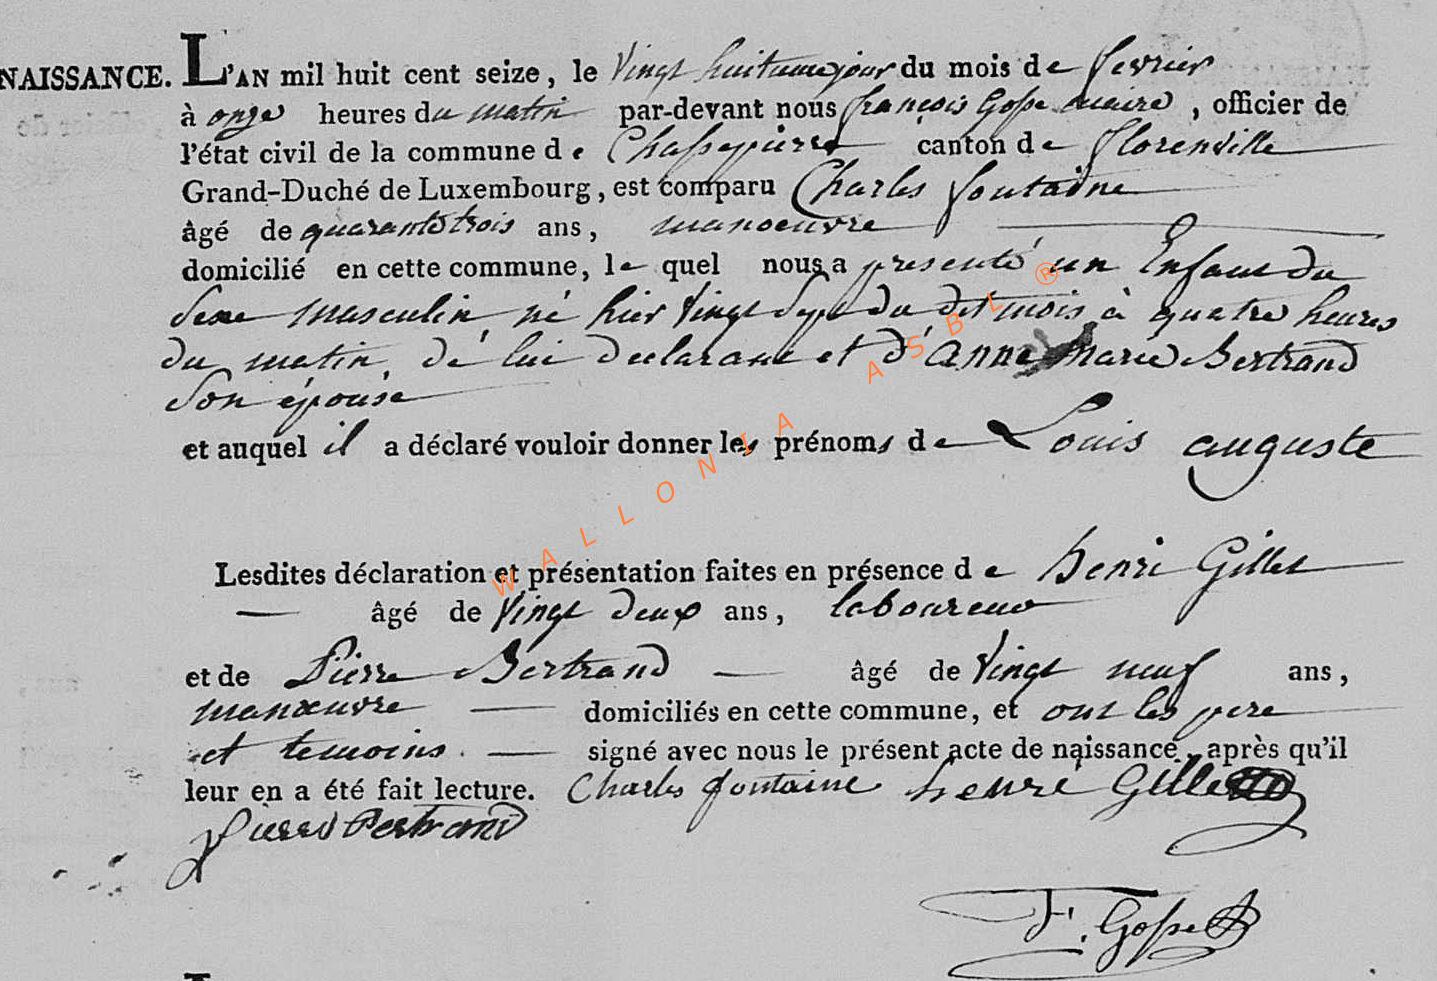 NAISSANCE. L'AN mil huit cent seize, le vingt huitieme jour du mois de fevrier
à onze heures du matin par-devant nous françois Gosse maire, officier de
l'état civil de la commune de Chassepierre canton de florenville
Grand-Duché de Luxembourg, est comparu Charles fontaine
âgé de quarante trois ans, manoeuvre
domicilié en cette commune, le quel nous a presenté un Enfant du
Sexe masculin, né hier vingt Sept du dit mois à quatre heures
du matin, de lui declarant et d'anne marie Bertrand
Son épouse
et auquel il a déclaré vouloir donner les prénoms de Louis auguste
Lesdites déclaration et présentation faites en présence de henri Gillet
âgé de vingt deux ans, laboureur
et de Pierre Bertrand âgé de vingt neuf ans,
manœuvre domiciliés en cette commune, et ont les pere
et temoins signé avec nous le présent acte de naissance, après qu'il
leur en a été fait lecture. Charles fontaine henri Gillet
pierre Bertrand
F. Gosse
WALLONIA ASBL ®